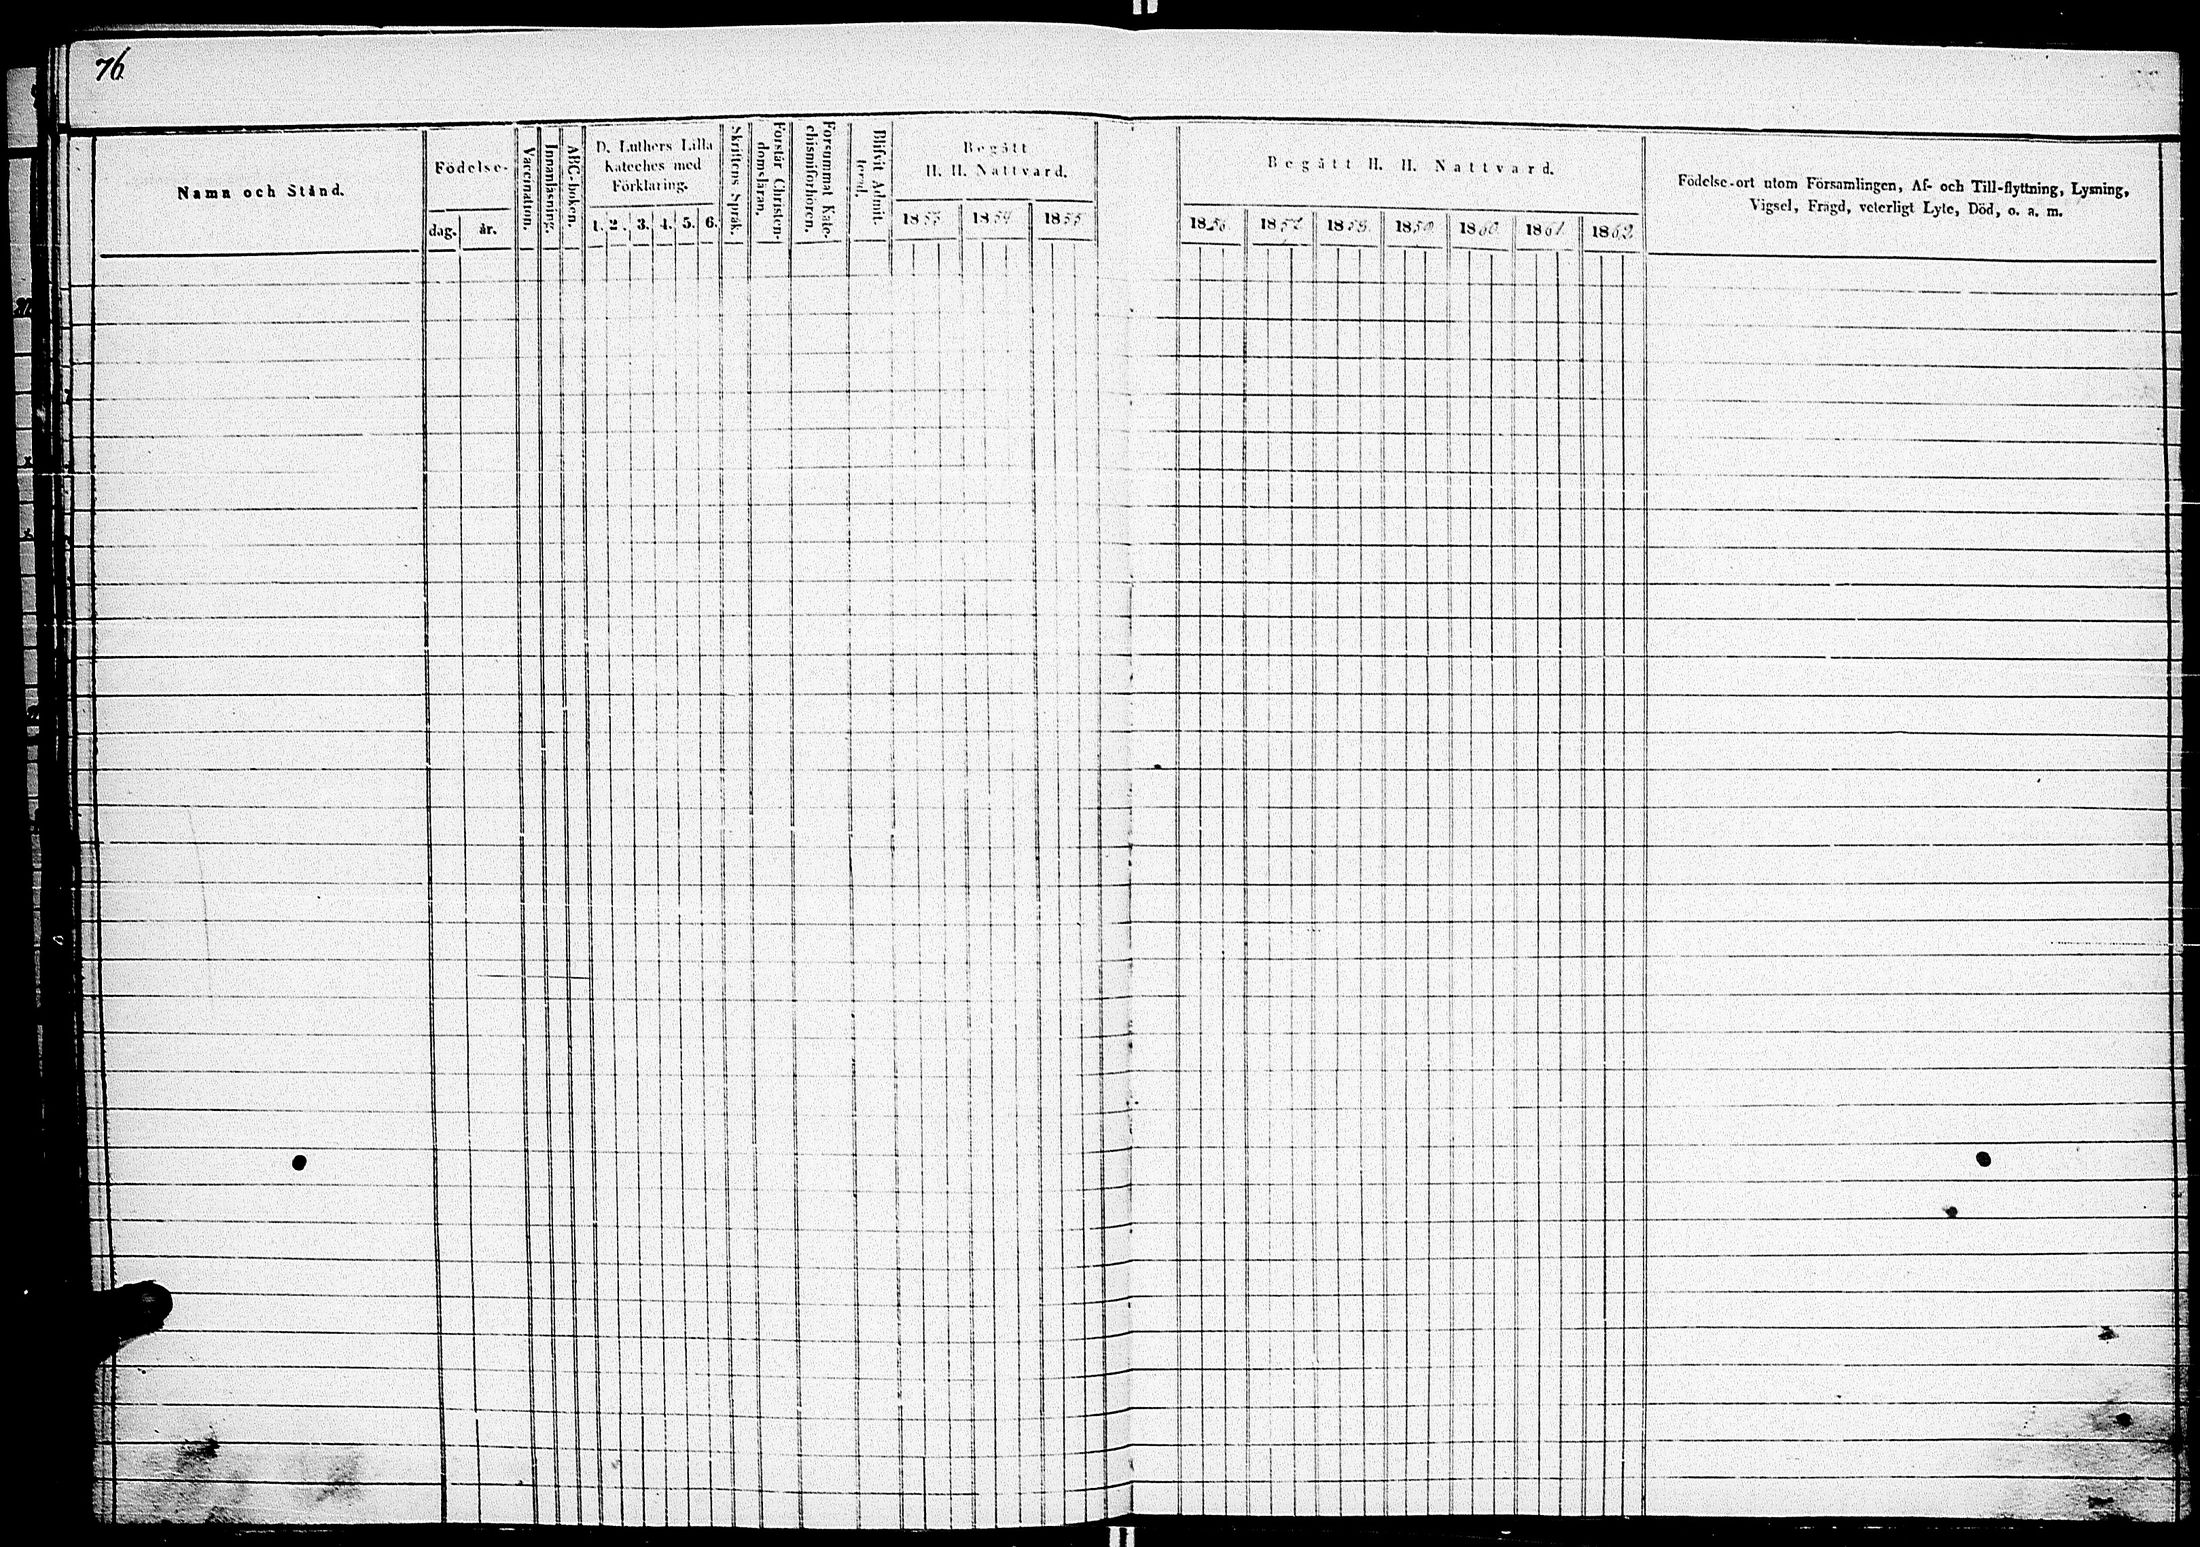 76
Namn och Stånd.
Födelse-
dag.
år.
Vaccination.
Innanläsning.
ABC-boken.
D. Luthers Lilla
Kateches med
Förklaring.
1. 2. 3. 4. 5. 6.
Skriftens Språk.
Förstår Christen-
domsläran.
Försummat Kate-
chismiförhören.
Blifvit Admit-
terad.
Begått
H. H. Nattvard.
1853 1854 1855
Begått H. H. Nattvard.
1856 1857 1858 1859 1860 1861 1862
Födelse-ort utom Församlingen, Af- och Till-flyttning, Lysning,
Vigsel, Frägd, veterligt Lyte, Död, o. a. m.